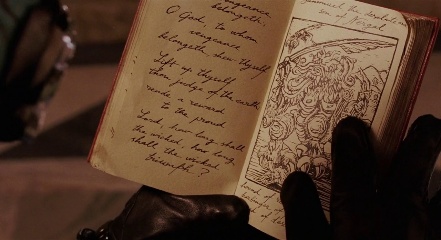 vengeance
belongeth.
O God, to whom
vengeance
belongeth, shew thyself
Lift up thyself,
thou judge of the earth
rende a reward
to the proud
Lord, how long shall
the wicked, how long
shall the wicked
triumph?
son of